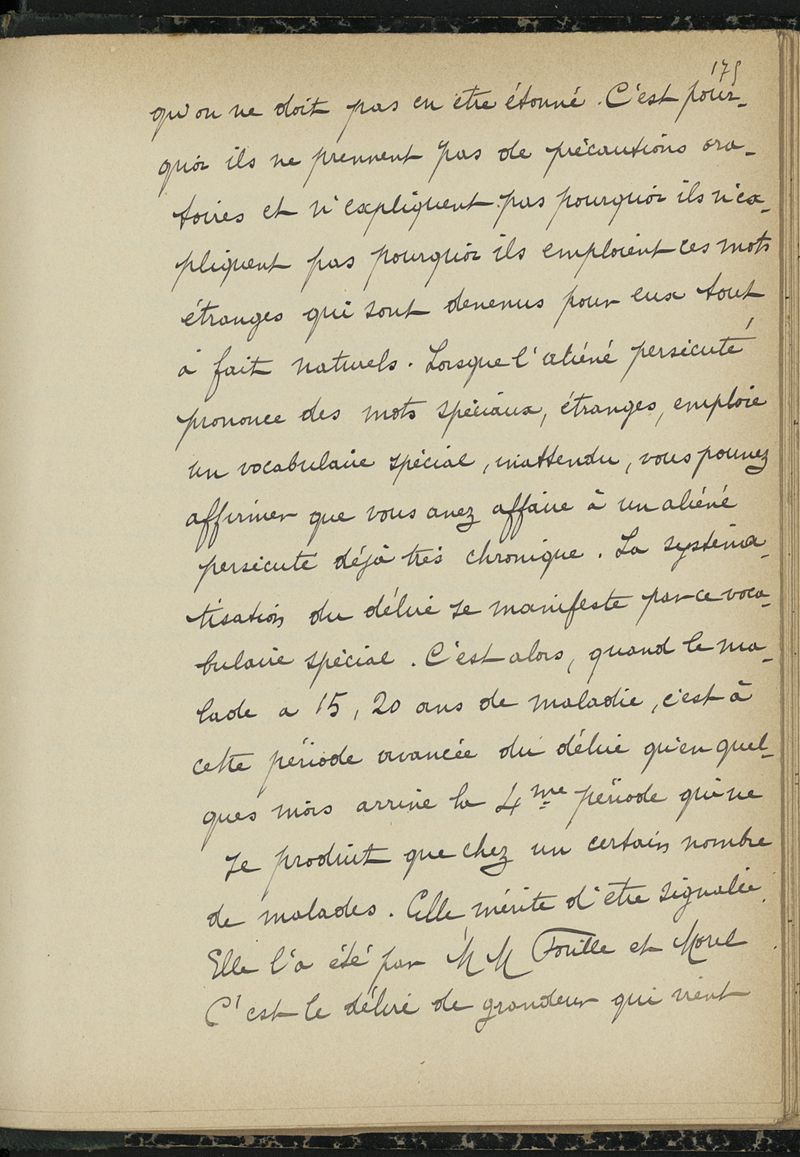 175
qu'on ne doit pas en etre étonné. C'est pour-
quoi ils ne prennent pas de précautions ora-
toires et n'expliquent pas pourquoi ils n'ex-
pliquent pas pourquoi ils emploient ces mots
étranges qui sont devenus pour eux tout
à fait naturels. Lorsque l'aliéné persécuté
prononce des mots spéciaux, étranges, emploie
un vocabulaire spécial, inattendu, vous pouvez
affirmer que vous avez affaire à un aliéné
persécuté déjà très chronique. La systéma-
tisation du délire se manifeste par ce voca-
bulaire spécial. C'est alors, quand le ma-
lade a 15, 20 ans de maladie, c'est à
cette période avancée du délire qu'en quel-
ques mois arrive la 4me période qui ne
se produit que chez un certain nombre
de malades. Elle mérite d'etre signalée.
Elle l'a été par MM Foville et Morel
C'est le délire de grandeur qui vient